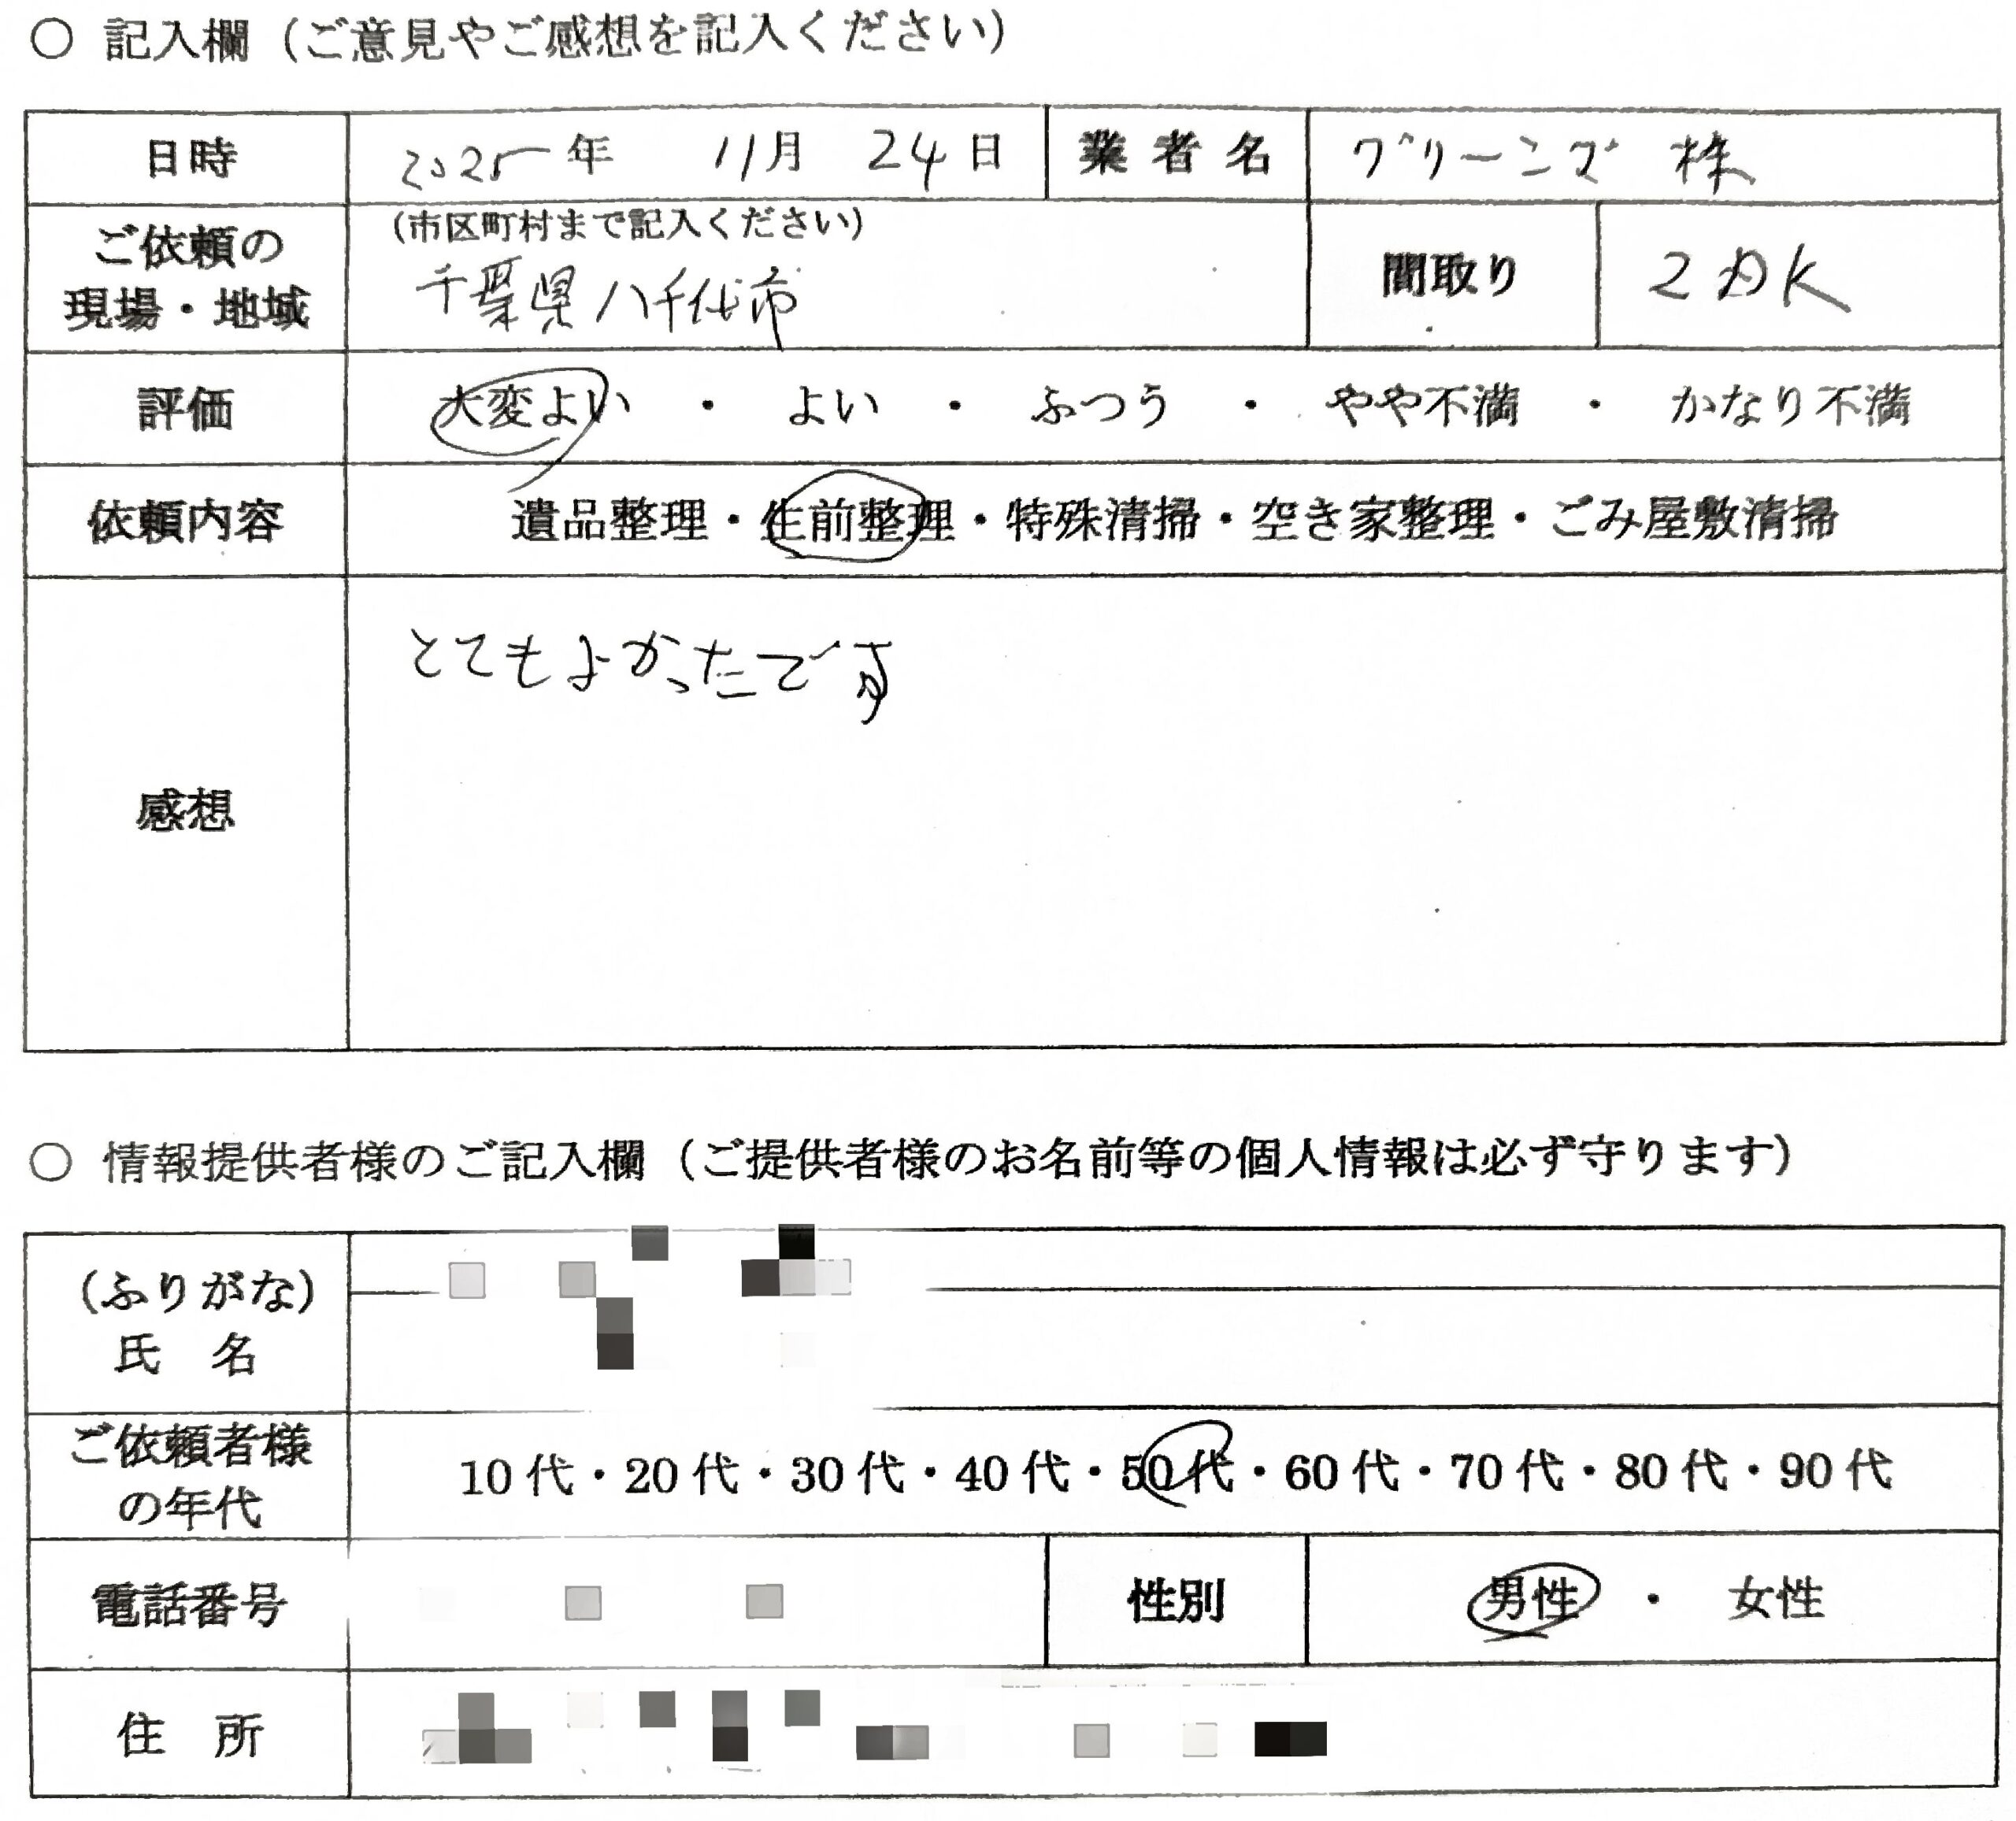 ○ 記入欄（ご意見やご感想を記入ください）
日時 2025年 11月 24日 業者名 グリーンズ 株
ご依頼の現場・地域 (市区町村まで記入ください) 千葉県八千代市 間取り 2DK
評価 大変よい ・ よい ・ ふつう ・ やや不満 ・ かなり不満
依頼内容 遺品整理・生前整理・特殊清掃・空き家整理・ごみ屋敷清掃
感想 とてもよかったです
○ 情報提供者様のご記入欄（ご提供者様のお名前等の個人情報は必ず守ります）
(ふりがな)
氏 名
ご依頼者様の年代 10代・20代・30代・40代・50代・60代・70代・80代・90代
電話番号 性別 男性 ・ 女性
住 所